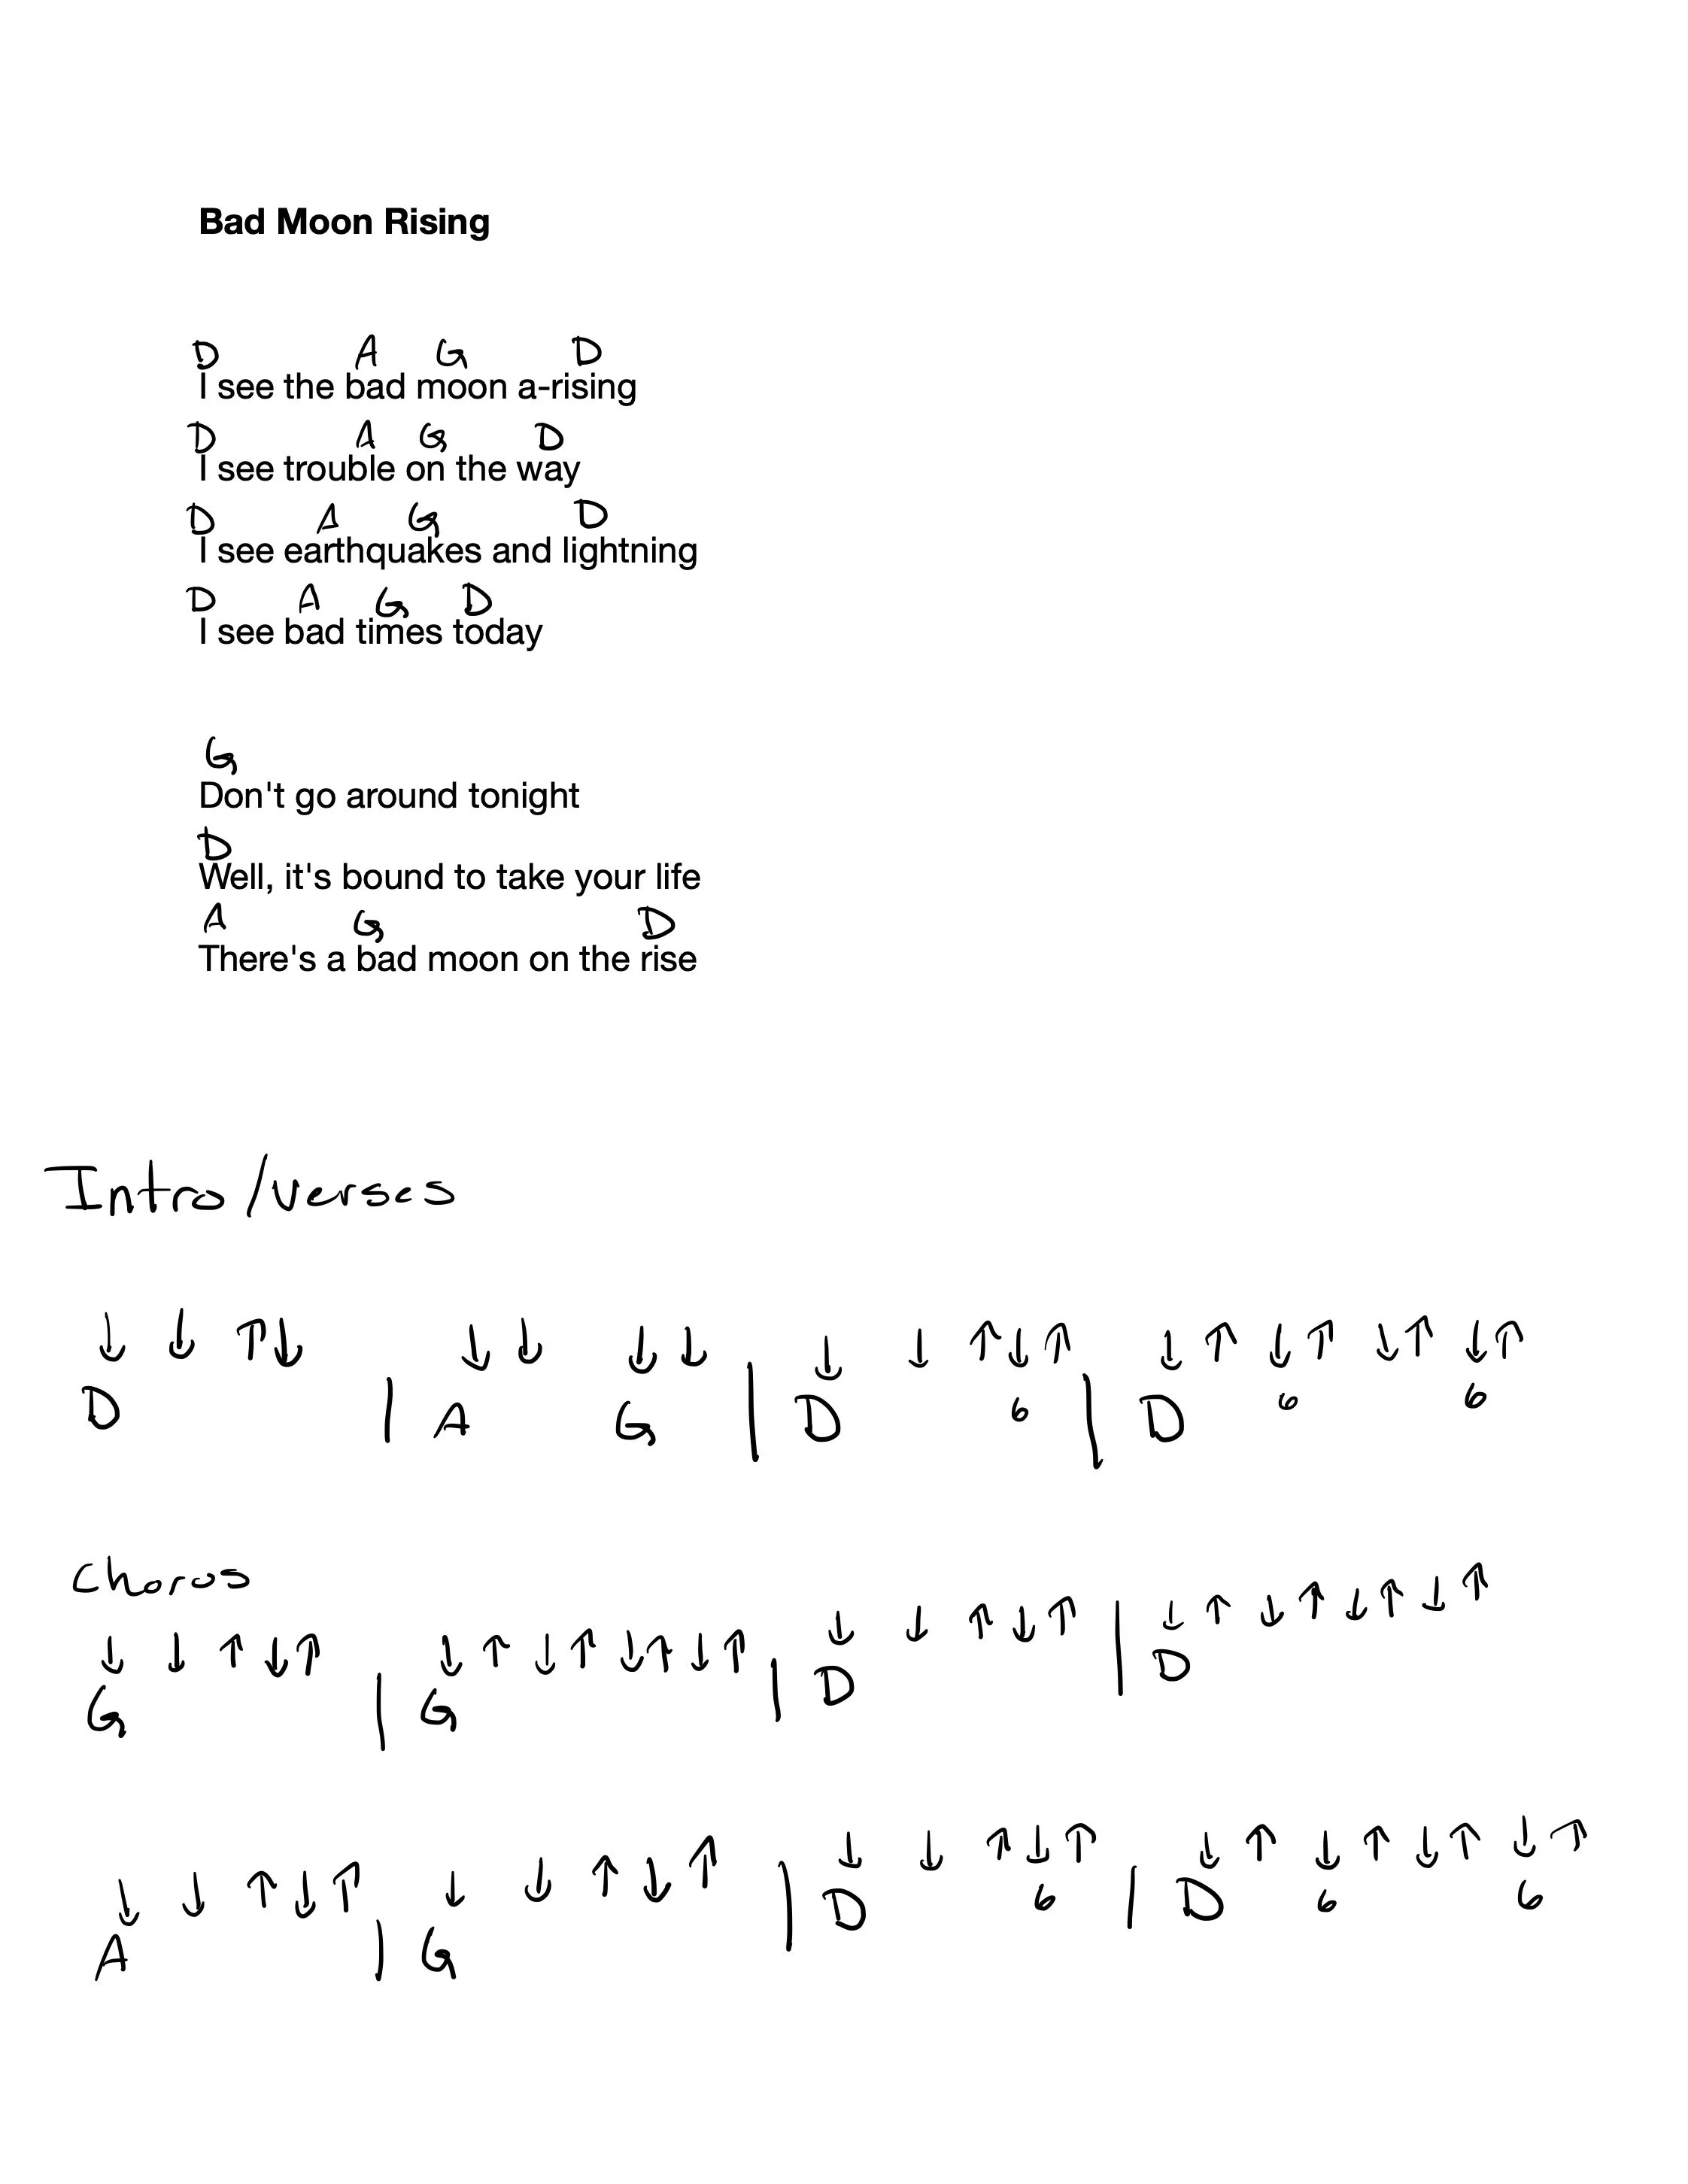 Bad Moon Rising
D A G D
I see the bad moon a-rising
D A G D
I see trouble on the way
D A G D
I see earthquakes and lightning
D A G D
I see bad times today
G
Don't go around tonight
D
Well, it's bound to take your life
A G D
There's a bad moon on the rise
Intro/verses
↓ ↓ ↑↓ ↓ ↓ ↓ ↓ ↓ ↓ ↑↓↑ ↓ ↑ ↓↑ ↓↑ ↓↑
D | A G | D 6 | D 6 6
Chorus
↓ ↓ ↑ ↓↑ ↓ ↑ ↓ ↑ ↓↑ ↓ ↑ ↓ ↓ ↑ ↓ ↑ ↓ ↑ ↓ ↑ ↓ ↑ ↓ ↑
G | G | D | D
↓ ↓ ↑ ↓ ↑ ↓ ↓ ↑ ↓ ↑ ↓ ↓ ↑↓↑ ↓ ↑ ↓ ↑ ↓ ↑ ↓ ↑
A | G | D 6 | D 6 6